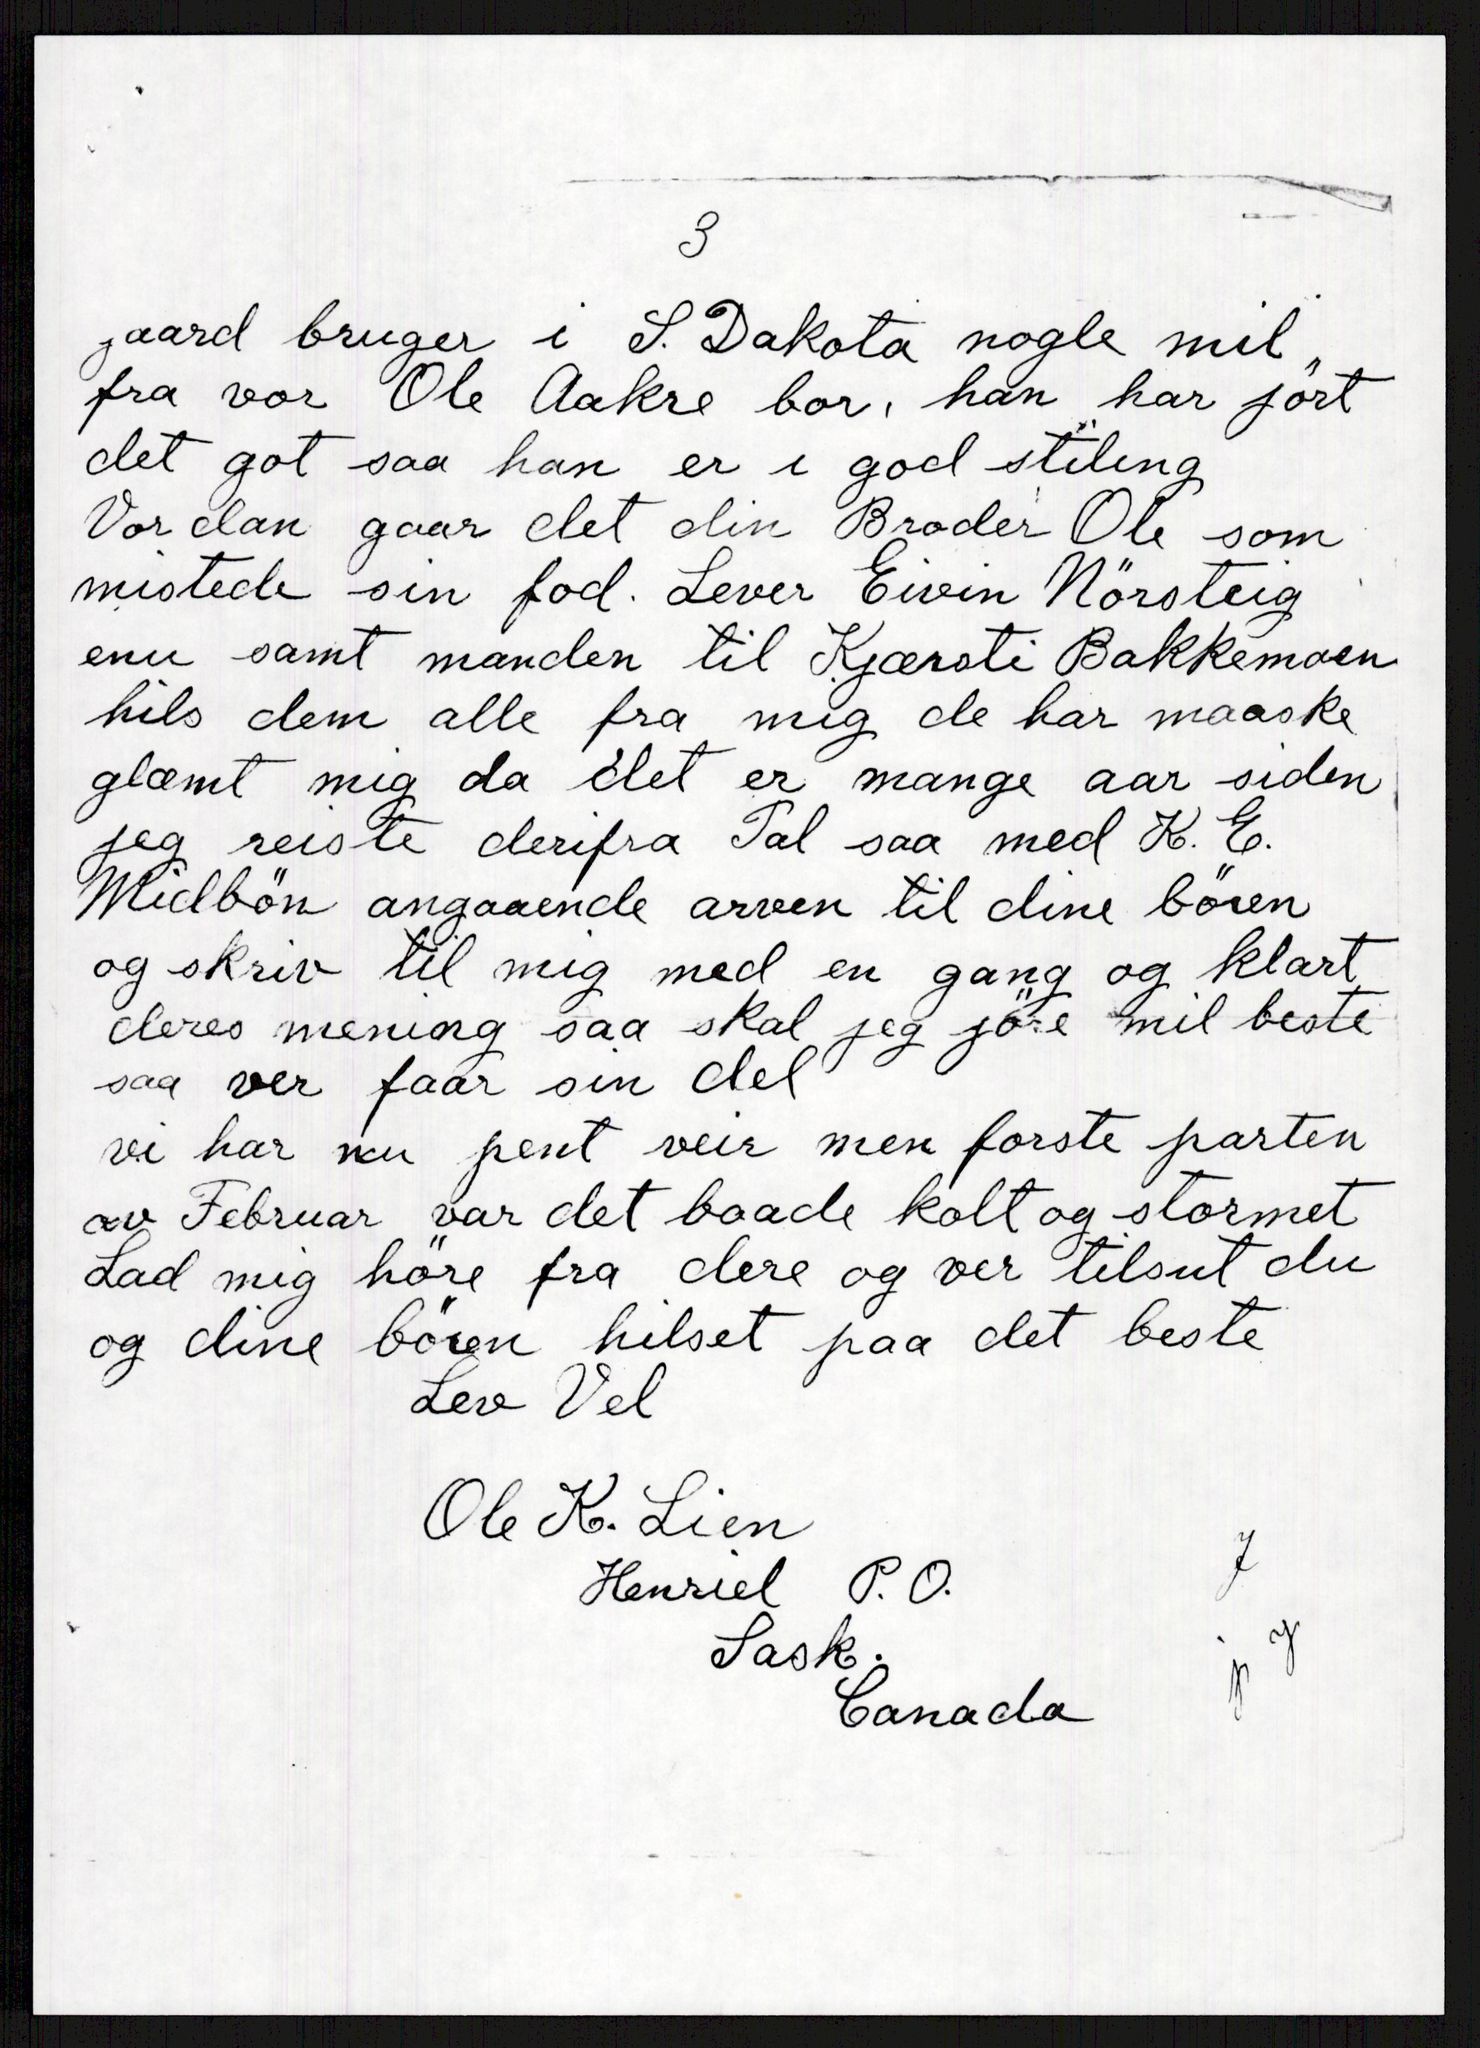 3
jaard bruger i S. Dakota nogle mil
fra vor Ole Aakre bor, han har jört
det got saa han er i god stiling
Vordan gaar det din Broder Ole som
mistede sin fod. Lever Eivin Nörsteig
enu samt manden til Kjærsti Bakkemoen
hils dem alle fra mig de har maaske
glæmt mig da det er mange aar siden
jeg reiste derifra Tal saa med K. E.
Midbön angaaende arven til dine bören
og skriv til mig med en gang og klart
deres mening saa skal jeg jöre mil beste
saa ver faar sin del
vi har nu pent veir men forste parten
av Februar var det baade kolt og stormet
Lad mig höre fra dere og ver tilsut du
og dine bören hilset paa det beste
Lev Vel
Ole K. Lien
Henriel P. O.
Sask.
Canada